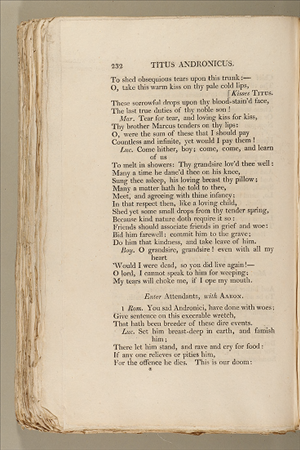 232 TITUS ANDRONICUS.
To shed obsequious tears upon this trunk:—
O, take this warm kiss on thy pale cold lips,
[Kisses TITUS.
These sorrowful drops upon thy blood-stain'd face,
The last true duties of thy noble son!
Mar. Tear for tear, and loving kiss for kiss,
Thy brother Marcus tenders on thy lips:
O, were the sum of these that I should pay
Countless and infinite, yet would I pay them!
Luc. Come hither, boy; come, come, and learn
of us
To melt in showers: Thy grandsire lov'd thee well:
Many a time he danc'd thee on his knee,
Sung thee asleep, his loving breast thy pillow;
Many a matter hath he told to thee,
Meet, and agreeing with thine infancy:
In that respect then, like a loving child,
Shed yet some small drops from thy tender spring,
Because kind nature doth require it so:
Friends should associate friends in grief and woe:
Bid him farewell; commit him to the grave;
Do him that kindness, and take leave of him.
Boy. O grandsire, grandsire! even with all my
heart
'Would I were dead, so you did live again!—
O lord, I cannot speak to him for weeping;
My tears will choke me, if I ope my mouth.
Enter Attendants, with AARON.
1 Rom. You sad Andronici, have done with woes:
Give sentence on this execrable wretch,
That hath been breeder of these dire events.
Luc. Set him breast-deep in earth, and famish
him;
There let him stand, and rave and cry for food:
If any one relieves or pities him,
For the offence he dies. This is our doom: